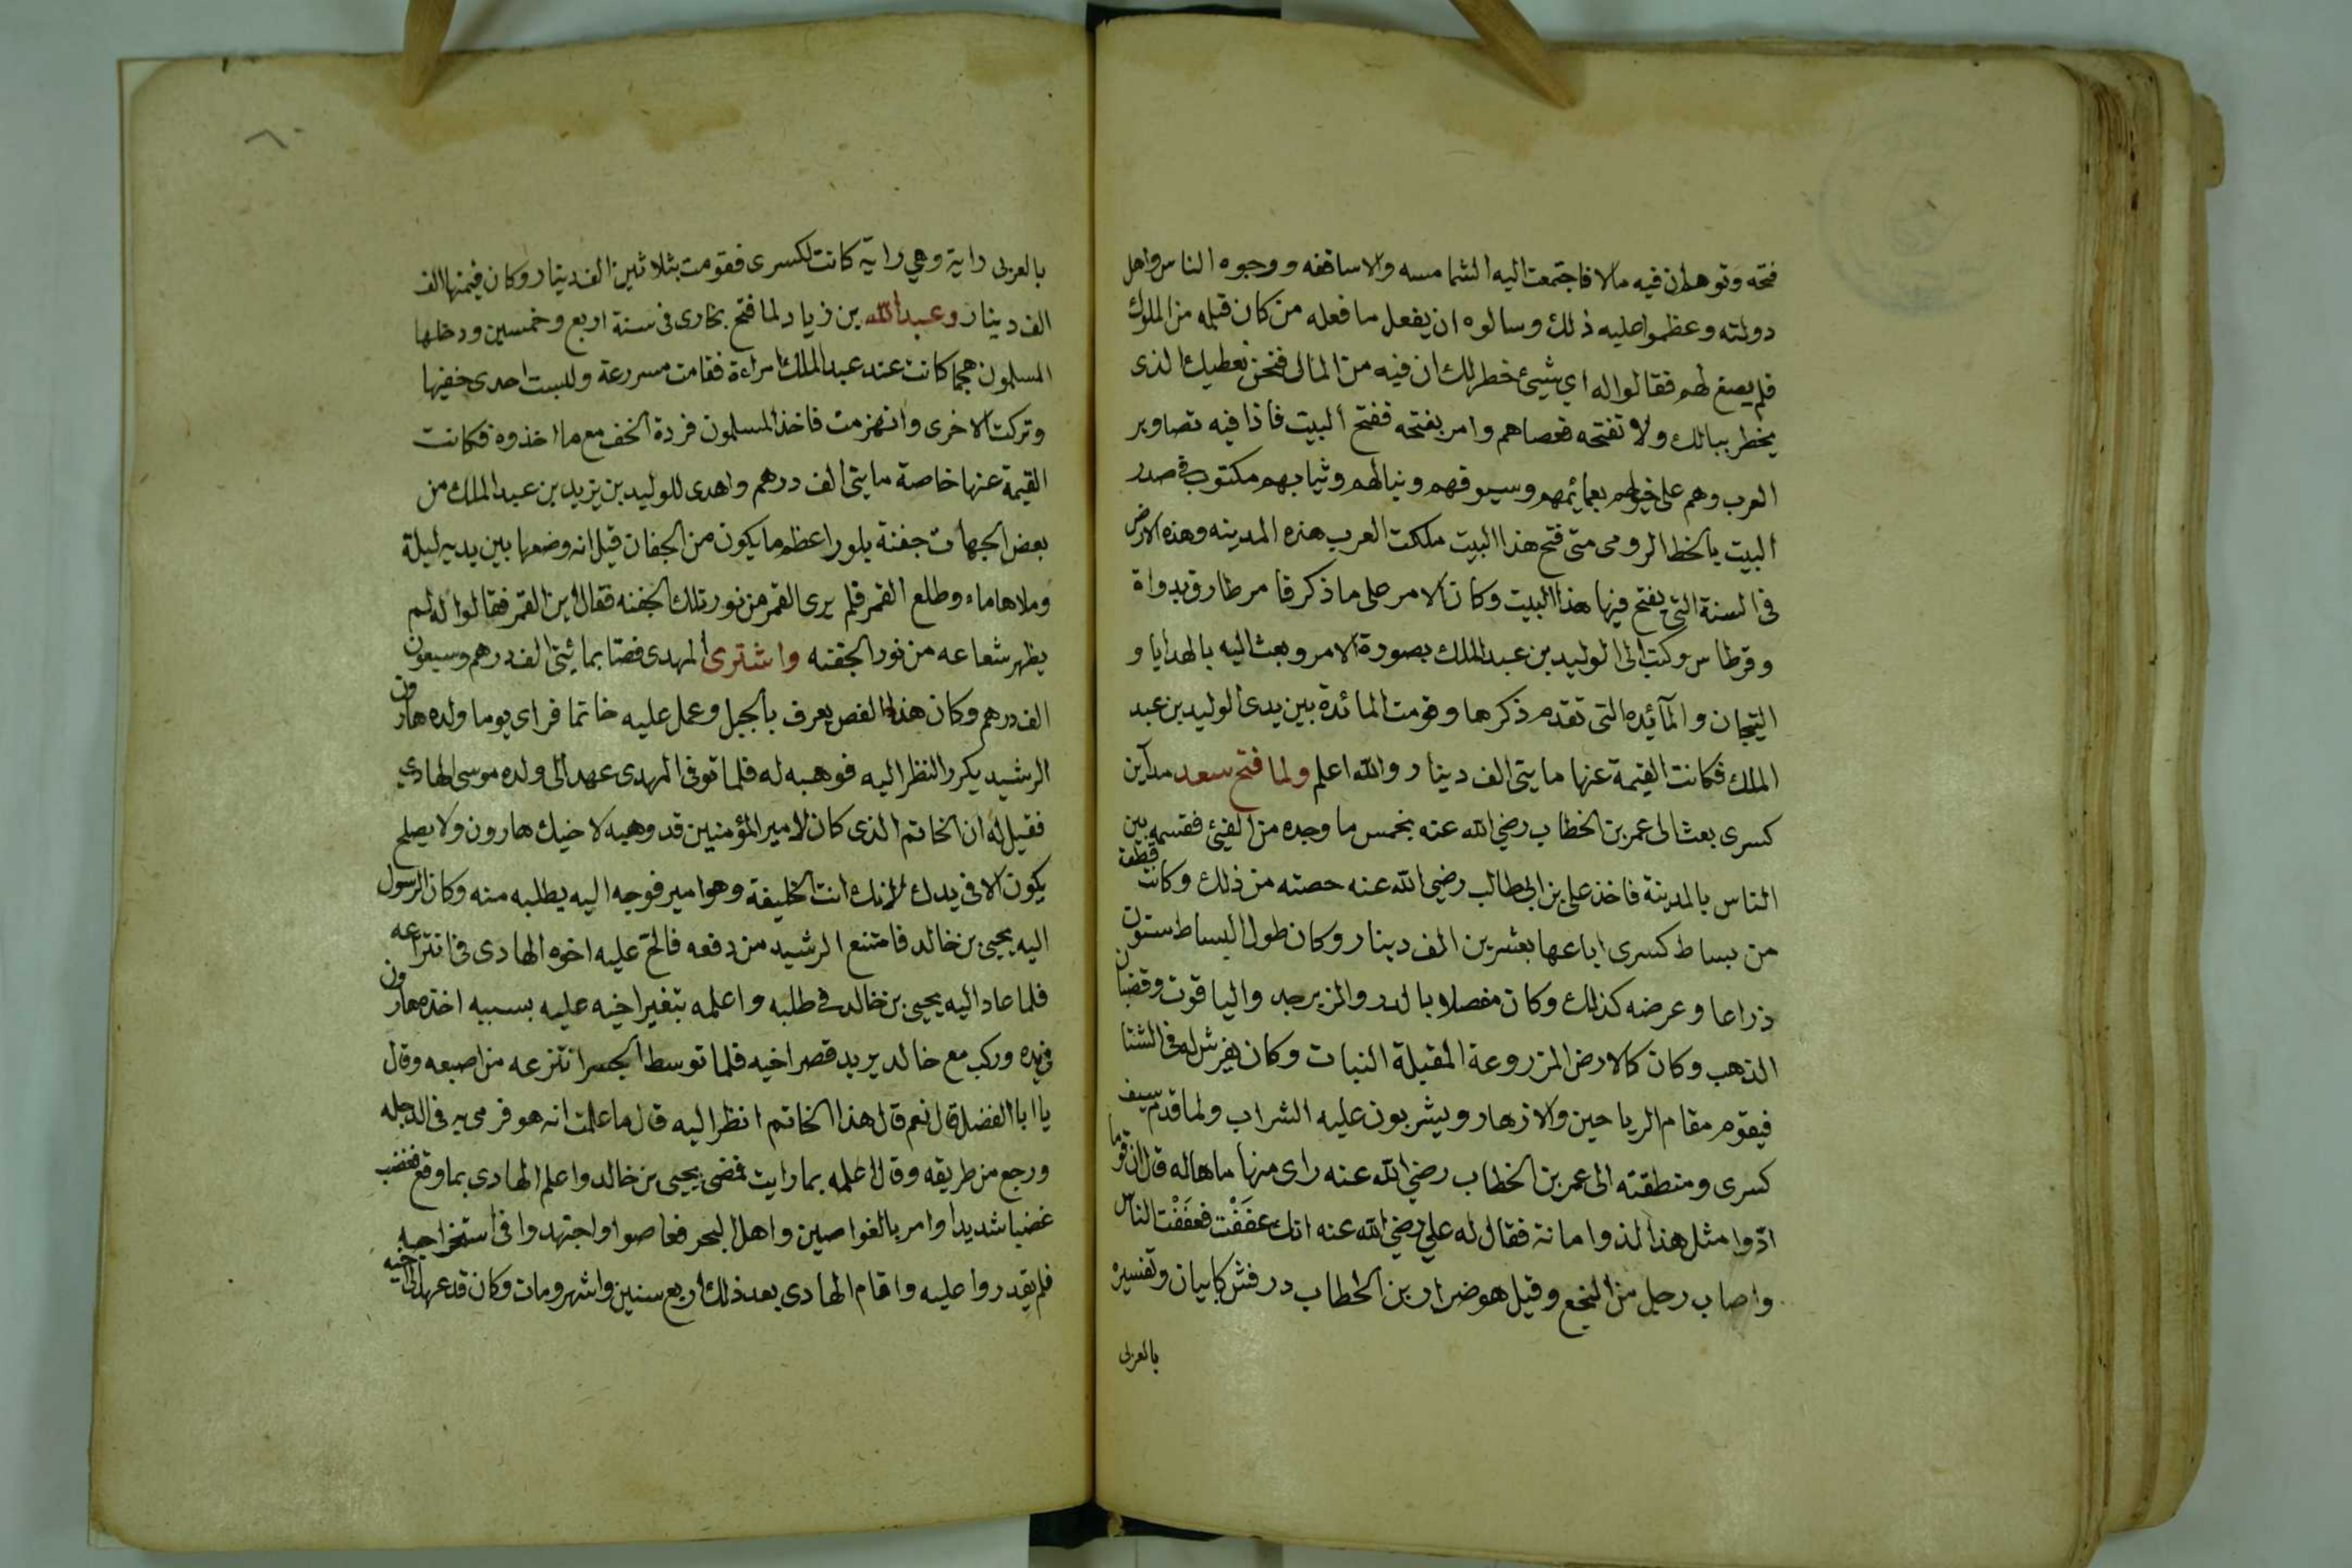 فتحه وتوهم ان فيه مالا فاجتمعت اليه الشمامسه والاساقفه ووجوه الناس واهل
دولته وعظموا عليه ذلك وسالوه ان يفعل ما فعله من كان قبله من الملوك
فلم يصغ لهم فقالوا له اي شيئ خطر لك ان فيه من المال فنحن نعطيك الذى
يخطر ببالك ولا تفتحه فعصاهم وامر بفتحه ففتح البيت فاذا فيه تصاوير
العرب وهم على خيولهم بعمائمهم وسيوفهم ونبالهم وثيابهم مكتوب فى صدر
البيت بالخط الرومى متى فتح هذا البيت ملكت العرب هذه المدينه وهذه الارض
فى السنة التى يفتح فيها هذا البيت وكان الامر على ما ذكر فامر طارق بدواة
وقرطاس وكتب الى الوليد بن عبد الملك بصورة الامر وبعث اليه بالهدايا و
التيجان والمآئده التى تقدم ذكرها وقومت المائدة بين يدى الوليد بن عبد
الملك فكانت القيمة عنها مايتى الف دينار والله اعلم ولما فتح سعد مدآين
كسرى بعث الى عمر بن الخطاب رضي الله عنه بخمس ما وجده من الفيئ فقسمه بين
الناس بالمدينة فاخذ على بن ابى طالب رضى الله عنه حصته من ذلك وكانت قطعة
من بساط كسرى اباعها بعشرين الف دينار وكان طول البساط ستون
ذراعا وعرضه كذلك وكان مفصلا بالدر والزبرجد والياقوت وقضبان
الذهب وكان كالارض المزروعة المقبلة النبات وكان يفرش له فى الشتا
فيقوم مقام الرياحين والازهار ويشربون عليه الشراب ولما قدم سيف
كسرى ومنطقته الى عمر بن الخطاب رضي الله عنه راى منها ما هاله قال ان قوما
ادّوا مثل هذا لذوا مانة فقال له علي رضي الله عنه انك عفَفْت فعفَفْت الناس
واصاب رجل من النخع وقيل هو ضرار بن الخطاب درفش كابيان وتفسيره
بالعربى
بالعربى راية وهي راية كانت لكسرى فقومت بثلاثين الف دينار وكان قيمتها الف
الف دينار وعبد الله بن زياد لما فتح بخارى فى سنة اربع وخمسين ودخلها
المسلمون هجما كانت عند عبد الملك امراءة فقامت مسررعة ولبست احدى خفيها
وتركت الاخرى وانهزمت فاخذ المسلمون فردة الخف مع ما اخذوه فكانت
القيمة عنها خاصة مايتى الف درهم واهدى للوليد بن يزيد بن عبد الملك من
بعض الجهات جفنة بلور اعظم ما يكون من الجفان قيل انه وضعها بين يديه ليلة
وملاها ماء وطلع القمر فلم يرى القمر من نور تلك الجفنه فقال اين القمر فقالوا له لم
يظهر شعاعه من نور الجفنه واشترى المهدى فصّا بمائتى الف درهم وسبعون
الف درهم وكان هذا الفص يعرف بالجبل وعمل عليه خاتما فراى يوما ولده هارون
الرشيد يكرر النظر اليه فوهبه له فلما توفى المهدى عهد الى ولده موسى الهادي
فقيل له ان الخاتم الذى كان لامير المؤمنين قد وهبه لاخيك هارون ولا يصلح
يكون الا فى يدك لانك انت الخليفة وهو امير فوجه اليه يطلبه منه وكان الرسول
اليه يحيى بن خالد فامتنع الرشيد من دفعه فالحّ عليه اخوه الهادى فى انتزاعه
فلما عاد اليه يحيى بن خالد فى طلبه واعلمه بتغير اخيه عليه بسببه اخذه هارون
فى يده وركب مع خالد يريد قصر اخيه فلما توسط الجسر انتزعه من اصبعه وقال
يا ابا الفضل قال نعم قال هذا الخاتم انظر اليه قال ما علمت انه هو فرمى به فى الدجله
ورجع من طريقه وقال اعلمه بما رايت فمضى يحيى بن خالد واعلم الهادى بما وقع فغضب
غضبا شديدا وامر بالغواصين واهل البحر فغاصوا واجتهدوا فى استخراجه
فلم يقدروا عليه واقام الهادى بعد ذلك اربع سنين واشهر ومات وكان قد عهد الى اخيه